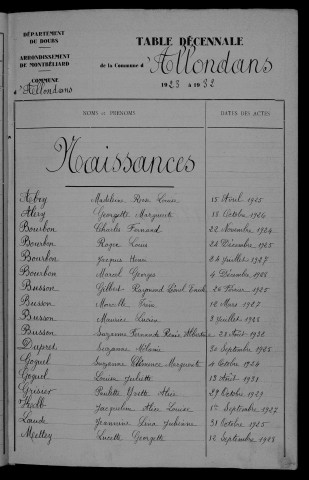 DÉPARTEMENT
DU DOUBS
ARRONDISSEMENT
DE MONTBÉLIARD
COMMUNE
d'Allondans
TABLE DÉCENNALE
de la Commune d'Allondans
1923 à 1932
NOMS et PRÉNOMS
DATES DES ACTES
Naissances
Abry Madeleine Rose 15 Avril 1925
Georgette Marguerite 18 Octobre 1926
Bourbon Charles Fernand 22 Novembre 1924
Bourbon Roger Louis 24 Décembre 1925
Bourbon Jacques Henri 24 Juillet 1927
Bourbon Marcel Georges 4 Décembre 1928
Busson Gilbert Raymond Paul Emile 24 Février 1925
Busson Marcelle 12 Mars 1927
Busson Maurice Lucien 9 Juillet 1928
Busson Suzanne Fernande Renée Albertine
Dupret Suzanne 30 Septembre 1925
Goguel Suzanne Clémence Marguerite 4 Octobre 1924
Goguel Louise Juliette 13 Août 1931
Grisier Paulette Yvette Alice 29 Octobre 1929
Jacqueline Alice Louise 1er Septembre 1927
Laude Jeannine Juliénne 31 Octobre 1925
Mettey Lucette Georgette 12 Septembre 1923